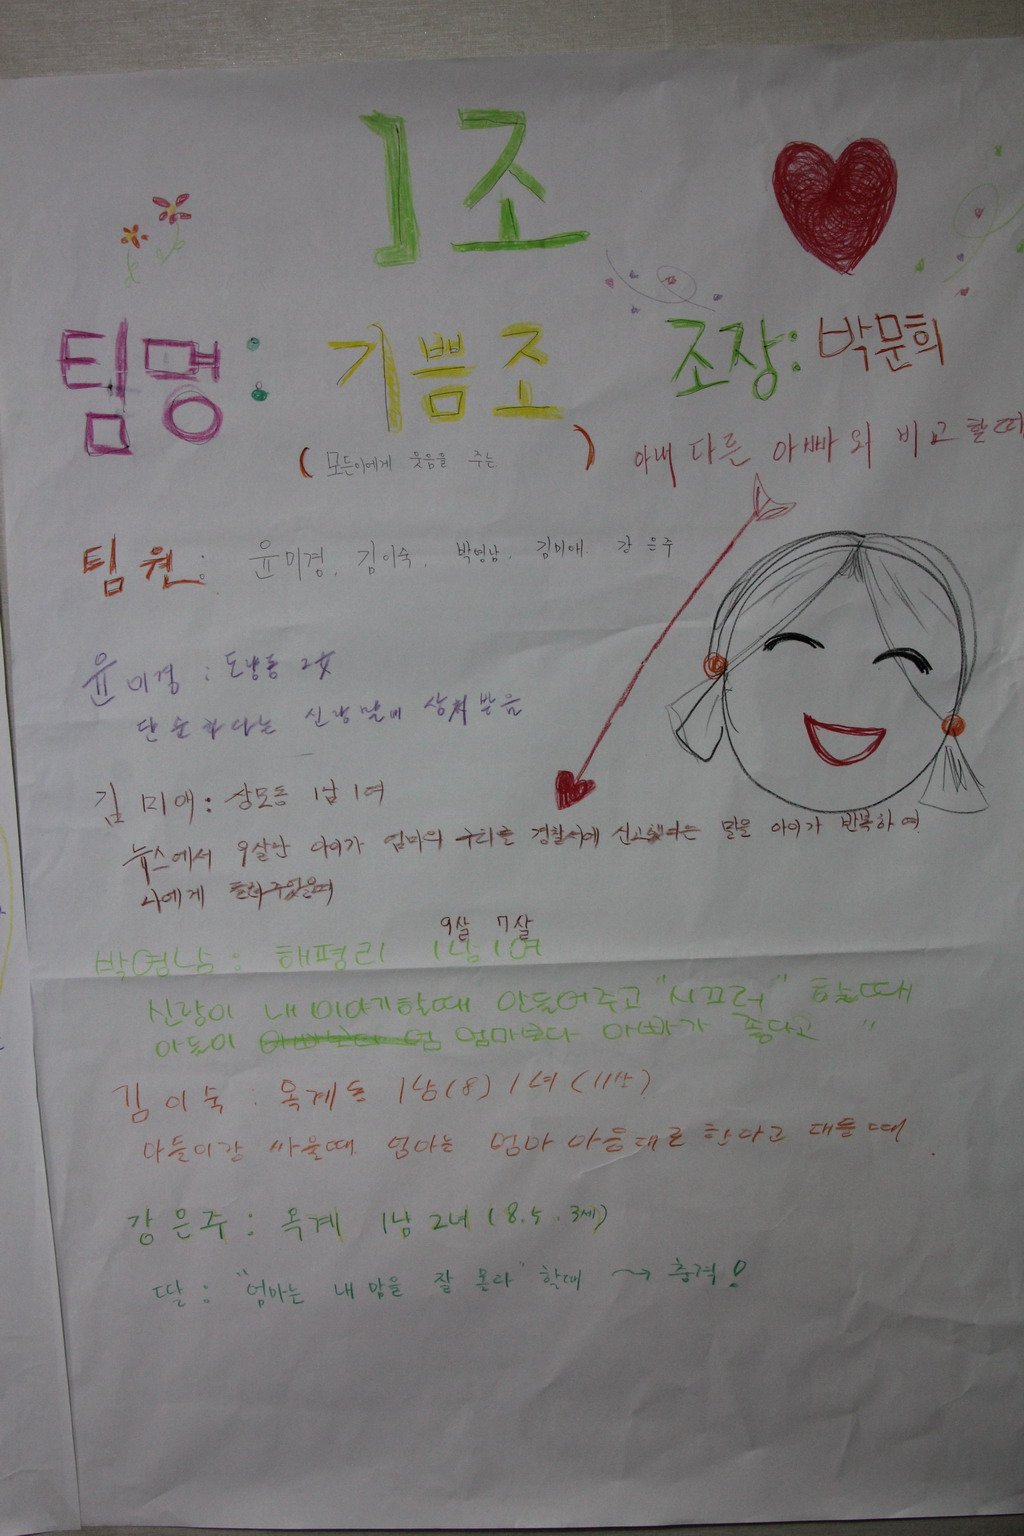 1조
팀명: 기쁨조 조장: 박문희
(모든이에게 웃음을 주는)
아내 다른 아빠와 비교할때
팀원: 윤미경, 김이숙, 박영남, 김미애. 강은주
윤미경: 도량동 2女
단순하다는 신랑말에 상처받음
김미애: 상모동 1남 1여
뉴스에서 9살난 아이가 엄마의 구타를 경찰서에 신고했다는 말을 아이가 반복하여
나에게 들려주었을때
9살 7살
박영남: 해평리 1남 1여
신랑이 내 이야기할때 안들어주고 "시끄러" 할때
아들이 엄마보다 아빠가 좋다고 "
김이숙: 옥계동 1남(8) 1녀(11살)
아들이랑 싸울때 엄마는 엄마 마음대로 한다고 대들때
강은주: 옥계 1남 2녀 (8.5.3세)
딸: "엄마는 내 맘을 잘 몰라" 할때 → 충격!